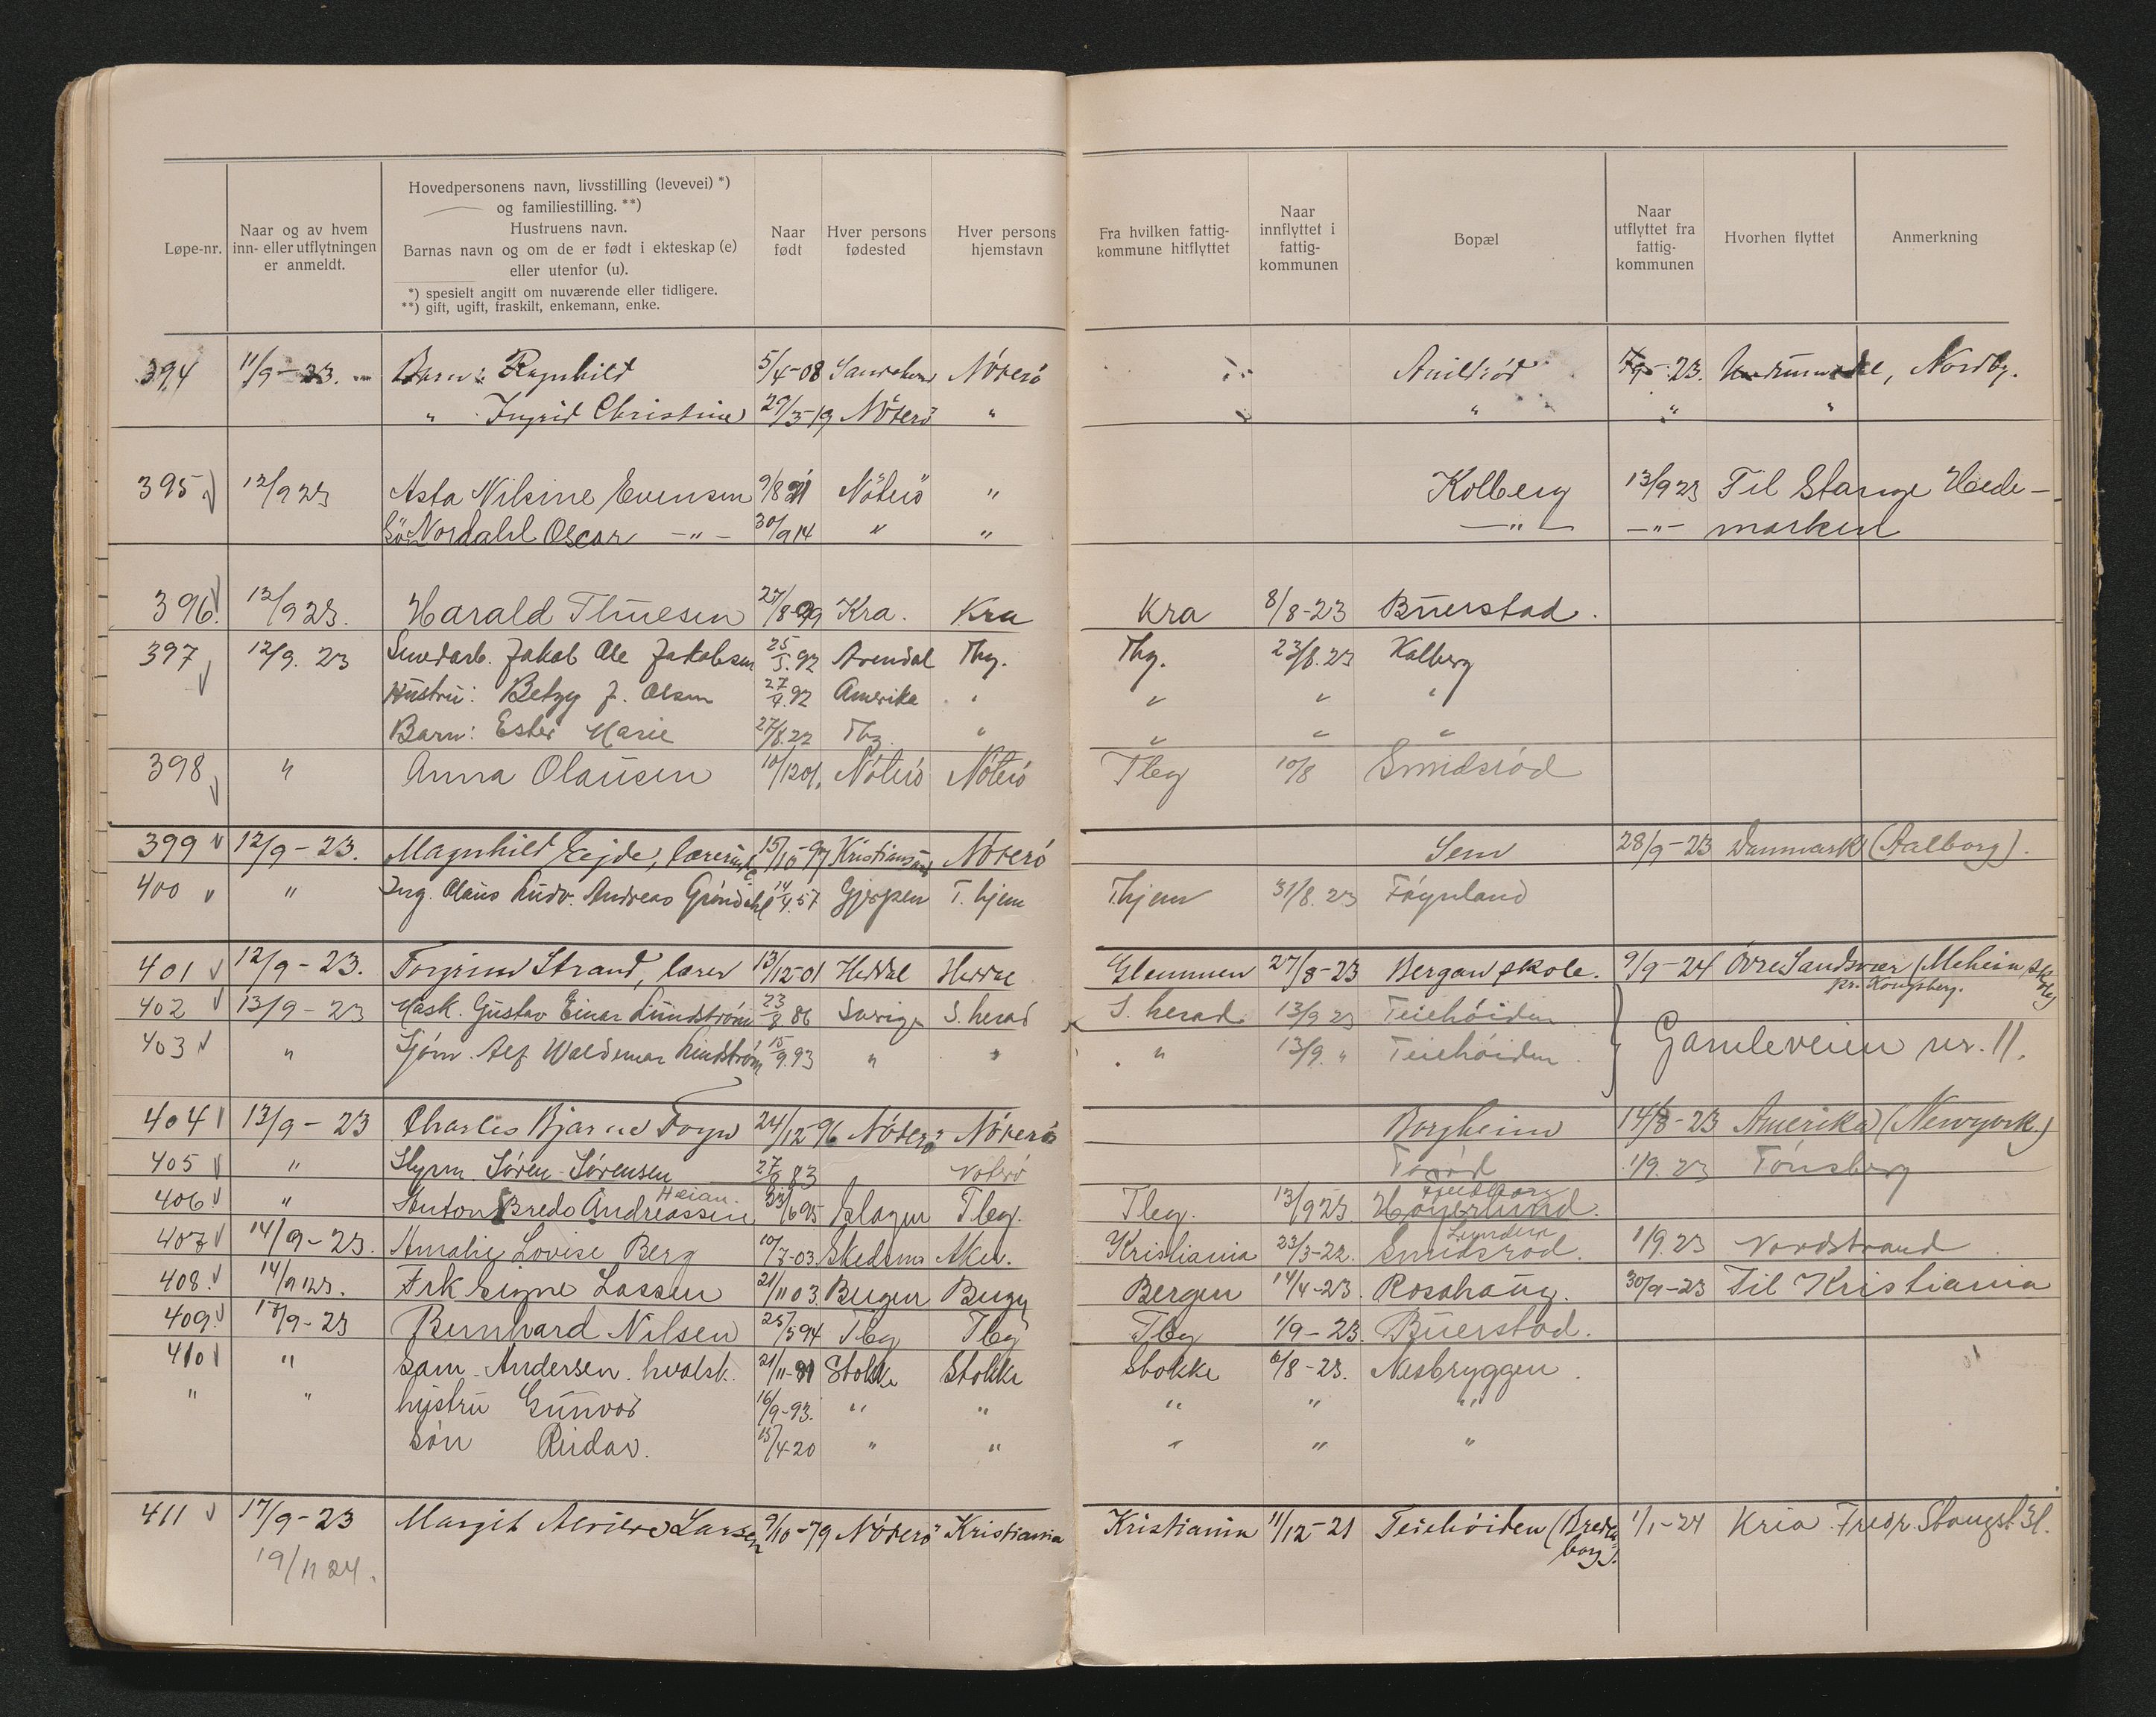 Løpe-nr.
Naar og av hvem
inn- eller utflytningen
er anmeldt.
Hovedpersonens navn, livsstilling (levevei) *)
og familiestilling. **)
Hustruens navn.
Barnas navn og om de er født i ekteskap (e)
eller utenfor (u).
*) spesielt angitt om nuværende eller tidligere.
**) gift, ugift, fraskilt, enkemann, enke.
Naar
født
Hver persons
fødested
Hver persons
hjemstavn
Fra hvilken fattig-
kommune hitflyttet
Naar
innflyttet i
fattig-
kommunen
Bopæl
Naar
utflyttet fra
fattig-
kommunen
Hvorhen flyttet
Anmerkning
394 11/9-23. Barn: Ragnhild 5/4-08 Nøterø -23. Nordby.
" Ingrid Christine 27/3-19 Nøterø " " " "
395 12/9 23 Asta Nilsine Evensen 9/8 Nøterø " Kolberg 13/9 23 Til Stange Hede-
Søn Nordahl Oscar -"- 30/9 14 " " -"- -"- marken
396. 12/9 23. Harald Thuesen 27/8-99 Kra. Kra Kra 8/8-23 Buerstad.
397 12/9. 23 Smedarb. Jakob Ole Jakobsen 25/3.92 Arendal Tbg. Tbg. 23/8.23 Kolberg
Hustru: Betzy J. Olsen 27/4.92 Amerika " " " "
Barn: Ester Marie 27/8.22 Tbg " " " "
398 " Anna Olausen 10/12 01. Nøterø Nøterø Tbeg 10/8 Smidsrød
399 12/9-23. Magnhild Eejde, lærerinde 15/10-97 Kristiansund Nøterø Sem 28/9-23 Danmark (Aalborg).
400 " Ing. Olaus Ludv. Andreas Grøndahl 14/4.57 Gjerpen T.hjem T.hjem 31/8.23 Føynland
401 12/9-23. Torgrim Strand, lærer 13/12-01 Heddal Heddal Glemmen 27/8-23 Bergan skole. 9/9-24 Øvre Sandsvær (Meheim sk
pr. Kongsberg.
402 13/9-23 Mask. Gustav Einar Lundstrøm 23/8 86 Sverige S. herad S. herad 13/9 23 Teiehøiden
Gamleveien nr. 11.
403 " Sjøm. Alf Waldemar Lundstrøm 15/9.93 " " " 13/9. " Teiehøiden
404 13/9-23 Charles Bjarne Foyn 24/12-96 Nøterø Nøterø Borgheim 14/8-23 Amerika (Newyork)
405 " Styrm. Søren Sørensen 27/8 83 Nøterø 1/9.23 Tønsberg
406 " Anton Bredo Andreassen 23/6 95 Slagen Tbeg. Tbeg. 13/9 23. Høyerlund.
407 14/9-23. Amalie Lovise Berg 10/7-03. Skedsmo Aker. Kristiania 23/3-22. Smidsrød. 1/9.23 Nordstrand
408. 14/9 23. Frk Signe Lassen 21/11 03. Bergen Bergen Bergen 14/4-23. Rosahaug. 30/9-23 Til Kristiania
409. 17/9-23 Bernhard Nilsen 25/5 94 Tbeg Tbeg Tbeg 1/9-23. Buerstad.
410 " Sam. Andersen. hvalsk. 21/11-91 Stokke Stokke Stokke 6/8-23. Nesbryggen.
" " hustru Gunvor 16/9-93. " " " " "
Søn Reidar. 15/4-20 " " " " "
411 17/9-23 Margit Larsen 9/10-79 Nøterø Kristiania Kristiania 11/12-21 Teiehøiden (Breda-
borg). 1/1-24 Kria Fredr. Stangst. 31.
19/11 24.